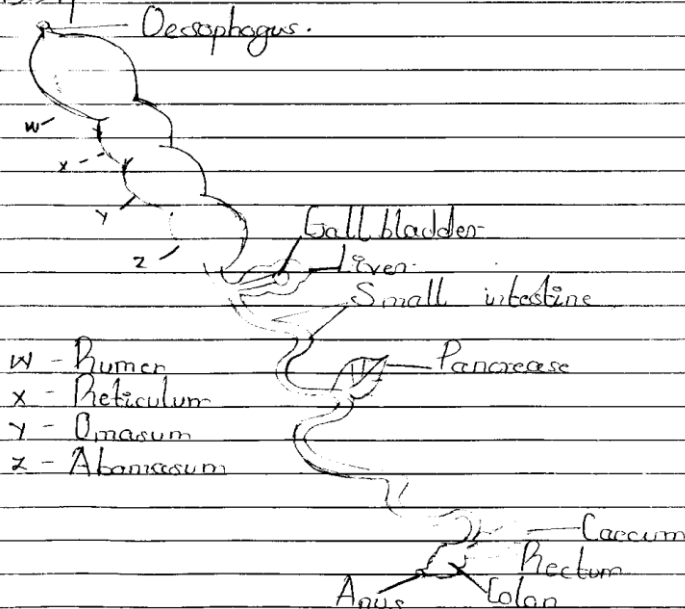 Oecsophagus.
W
X
Y
Z
Gall bladder
Liver
Small intestine
W - Rumen
Pancrease
X - Reticulum
Y - Omasum
Z - Abomasum
Caecum
Rectum
Anus
Colon